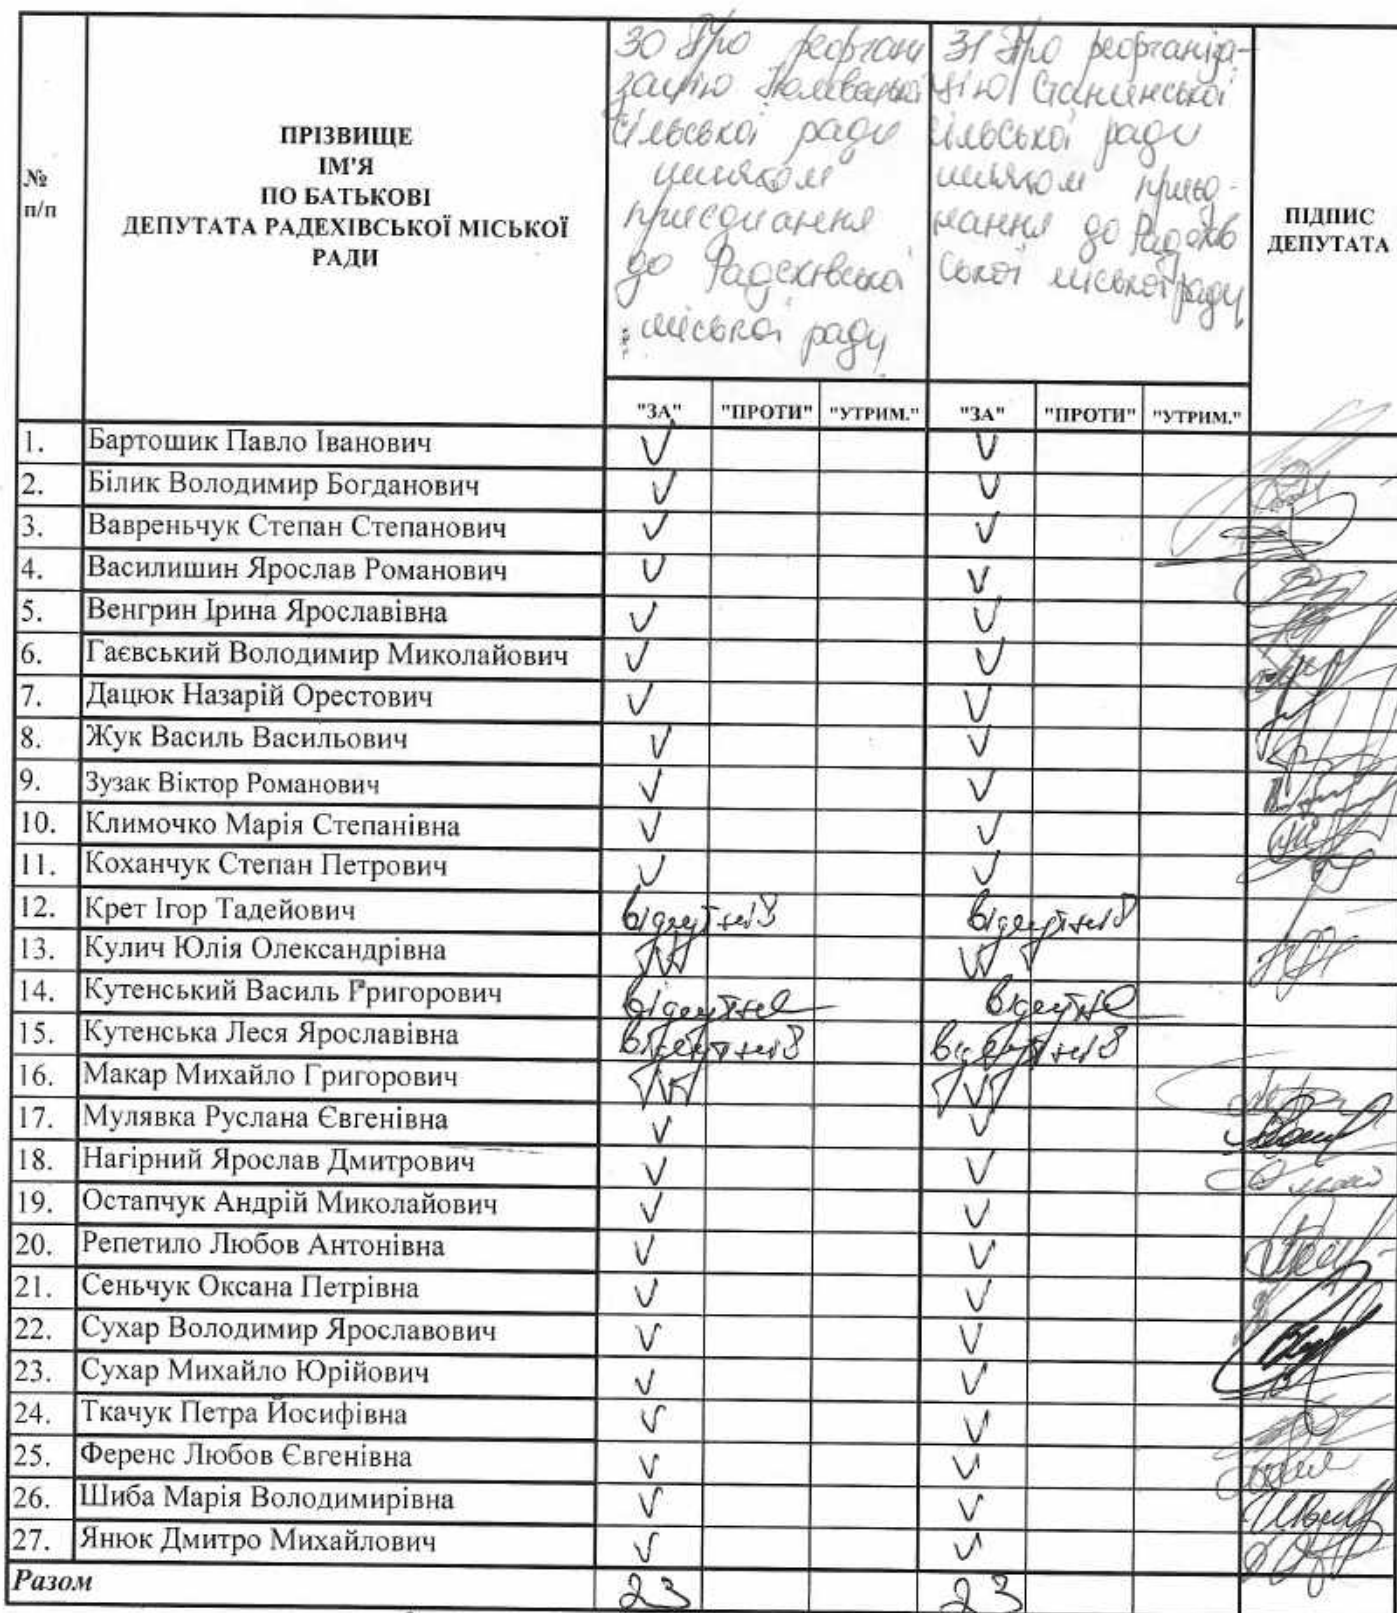 №
п/п
ПРІЗВИЩЕ
ІМ'Я
ПО БАТЬКОВІ
ДЕПУТАТА РАДЕХІВСЬКОЇ МІСЬКОЇ
РАДИ
30 Про реоргані
зацію
сільської ради
шляхом
приєднання
до Радехівської
міської ради
31 Про реорганіза-
цію Станинської
сільської ради
шляхом приєд-
нання до Радехів
ської міської ради
ПІДПИС
ДЕПУТАТА
"ЗА" "ПРОТИ" "УТРИМ." "ЗА" "ПРОТИ" "УТРИМ."
1. Бартошик Павло Іванович V V
2. Білик Володимир Богданович V V
3. Вавреньчук Степан Степанович V V
4. Василишин Ярослав Романович V V
5. Венгрин Ірина Ярославівна V V
6. Гаєвський Володимир Миколайович V V
7. Дацюк Назарій Орестович V V
8. Жук Василь Васильович V V
9. Зузак Віктор Романович V V
10. Климочко Марія Степанівна V V
11. Коханчук Степан Петрович V V
12. Крет Ігор Тадейович відсутній відсутній
13. Кулич Юлія Олександрівна
14. Кутенський Василь Григорович
15. Кутенська Леся Ярославівна
16. Макар Михайло Григорович
17. Мулявка Руслана Євгенівна V V
18. Нагірний Ярослав Дмитрович V V
19. Остапчук Андрій Миколайович V V
20. Репетило Любов Антонівна V V
21. Сеньчук Оксана Петрівна V V
22. Сухар Володимир Ярославович V V
23. Сухар Михайло Юрійович V V
24. Ткачук Петра Йосифівна V V
25. Ференс Любов Євгенівна V V
26. Шиба Марія Володимирівна V V
27. Янюк Дмитро Михайлович V V
Разом 23 23